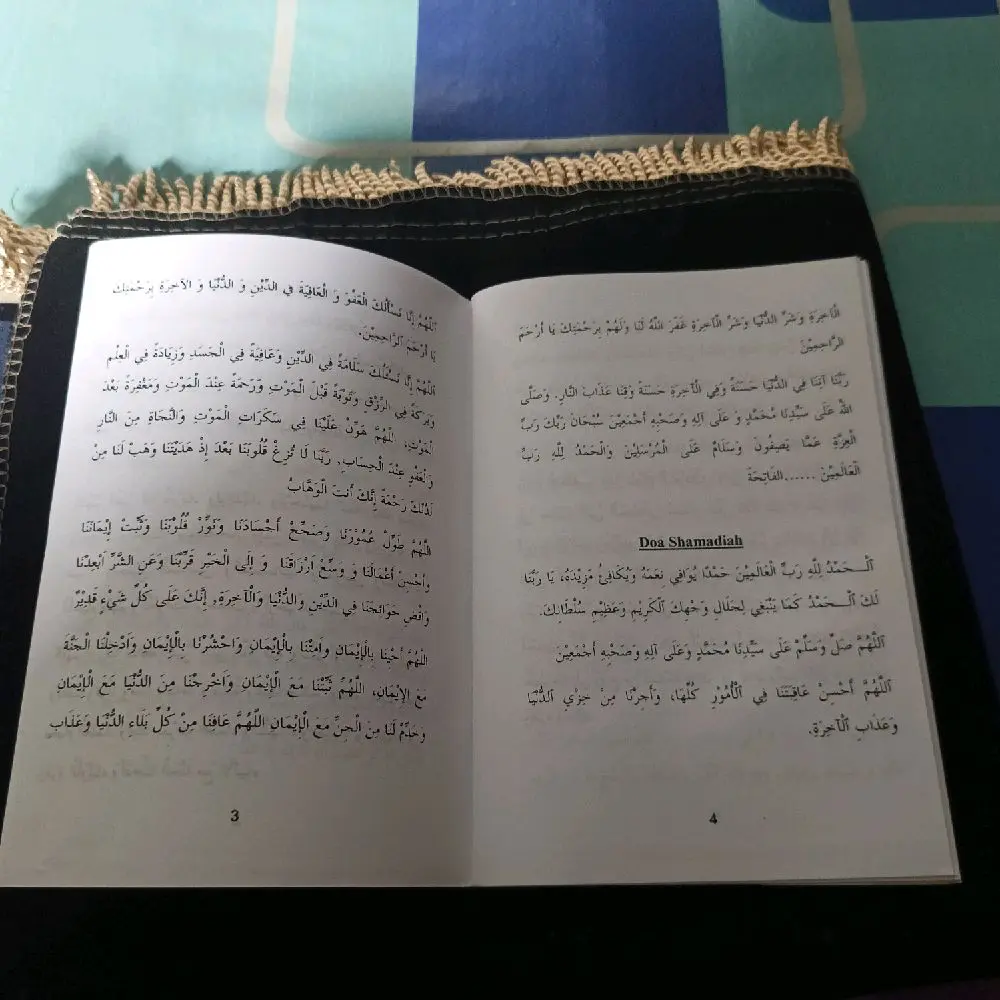 اَللّٰهُمَّ إِنَّا نَسْأَلُكَ الْعَفْوَ وَ الْعَافِيَةَ فِي الدِّيْنِ وَ الدُّنْيَا وَ الآخِرَةِ بِرَحْمَتِكَ
يَا أَرْحَمَ الرَّاحِمِيْنَ.
اَللّٰهُمَّ إِنَّا نَسْأَلُكَ سَلَامَةً فِي الدِّيْنِ وَعَافِيَةً فِي الْجَسَدِ وَزِيَادَةً فِي الْعِلْمِ
وَبَرَكَةً فِي الرِّزْقِ وَتَوْبَةً قَبْلَ الْمَوْتِ وَرَحْمَةً عِنْدَ الْمَوْتِ وَمَغْفِرَةً بَعْدَ
الْمَوْتِ، اللَّهُمَّ هَوِّنْ عَلَيْنَا فِي سَكَرَاتِ الْمَوْتِ وَالنَّجَاةَ مِنَ النَّارِ
وَالْعَفْوَ عِنْدَ الْحِسَابِ, رَبَّنَا لَا تُزِغْ قُلُوبَنَا بَعْدَ إِذْ هَدَيْتَنَا وَهَبْ لَنَا مِنْ
لَدُنْكَ رَحْمَةً إِنَّكَ أَنتَ الْوَهَّابُ
اللَّهُمَّ طَوِّلْ عُمُوْرَنَا وَصَحِّحْ أَجْسَادَنَا وَنَوِّرْ قُلُوْبَنَا وَثَبِّتْ إِيْمَانَنَا
وَأَحْسِنْ أَعْمَالَنَا وَ وَسِّعْ اَرْزَاقَنَا وَ إِلَى الْخَيْرِ قَرِّبْنَا وَعَنِ الشَّرِّ اَبْعِدْنَا
وَاقْضِ حَوَائِجَنَا فِي الدِّيْنِ وَالدُّنْيَا وَالْآخِرَةِ, إِنَّكَ عَلَى كُلِّ شَيْءٍ قَدِيْرٌ
اللَّهُمَّ أَحْيِنَا بِالْإِيْمَانِ وَأَمِتْنَا بِالْإِيْمَانِ وَاحْشُرْنَا بِالْإِيْمَانِ وَأَدْخِلْنَا الْجَنَّةَ
مَعَ الإِيْمَانِ، اللَّهُمَّ ثَبِّتْنَا مَعَ الْإِيْمَانِ وَاَخْرِجْنَا مِنَ الدُّنْيَا مَعَ الْإِيْمَانِ
لَنَا مِنَ الْجِنِّ مَعَ الْإِيْمَانِ اللَّهُمَّ عَافِنَا مِنْ كُلِّ بَلَاءِ الدُّنْيَا وَعَذَابِ
3
الْآخِرَةِ وَشَرِّ الدُّنْيَا وَشَرِّ الْآخِرَةِ غَفَرَ اللهُ لَنَا وَلَهُمْ بِرَحْمَتِكَ يَا أَرْحَمَ
الرَّاحِمِيْنَ
رَبَّنَا آتِنَا فِي الدُّنْيَا حَسَنَةً وَفِي الْآخِرَةِ حَسَنَةً وَقِنَا عَذَابَ النَّارِ. وَصَلَّى
اللهُ عَلَى سَيِّدِنَا مُحَمَّدٍ وَ عَلَى آلِهِ وَصَحْبِهِ أَجْمَعِيْنَ سُبْحَانَ رَبِّكَ رَبِّ
الْعِزَّةِ عَمَّا يَصِفُونَ وَسَلَامٌ عَلَى الْمُرْسَلِيْنَ وَالْحَمْدُ لِلّٰهِ رَبِّ
الْعَالَمِيْنَ ......الفَاتِحَة
Doa Shamadiah
اَلْـــحَمْدُ لِلّٰهِ رَبِّ الْعَالَمِيْنَ حَمْدًا يُوَافِي نِعَمَهُ وَيُكَافِئُ مَزِيْدَهُ، يَا رَبَّنَا
لَكَ الْـــحَمْدُ كَمَا يَنْبَغِي لِجَلَالِ وَجْهِكَ الْكَرِيْمِ وَعَظِيْمِ سُلْطَانِكَ.
اَللّٰهُمَّ صَلِّ وَسَلِّمْ عَلَى سَيِّدِنَا مُحَمَّدٍ وَعَلَى آلِهِ وَصَحْبِهِ أَجْمَعِيْنَ
اَللّٰهُمَّ أَحْسِنْ عَاقِبَتَنَا فِي الْأُمُوْرِ كُلِّهَا، وَأَجِرْنَا مِنْ خِزْيِ الدُّنْيَا
وَعَذَابِ الْآخِرَةِ.
4